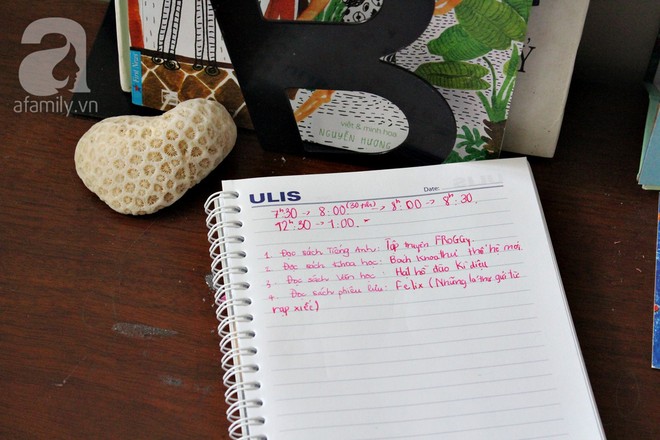 afamily.vn
First News
viết & minh họa
NGUYỄN HƯƠNG
B
Y
ULIS
Date:
7h30 → 8:00 (30 phút) → 8h:00 → 8h:30.
12h:30 → 1:00.
1. Đọc sách Tiếng Anh: Tập truyện FROGGY.
2. Đọc sách Khoa học: Bách Khoa thư thế hệ mới.
3. Đọc sách Văn học: Hai hõn đảo Kì diệu
4. Đọc sách phiêu lưu: Felix (Những lá thư gửi từ
rạp xiếc)